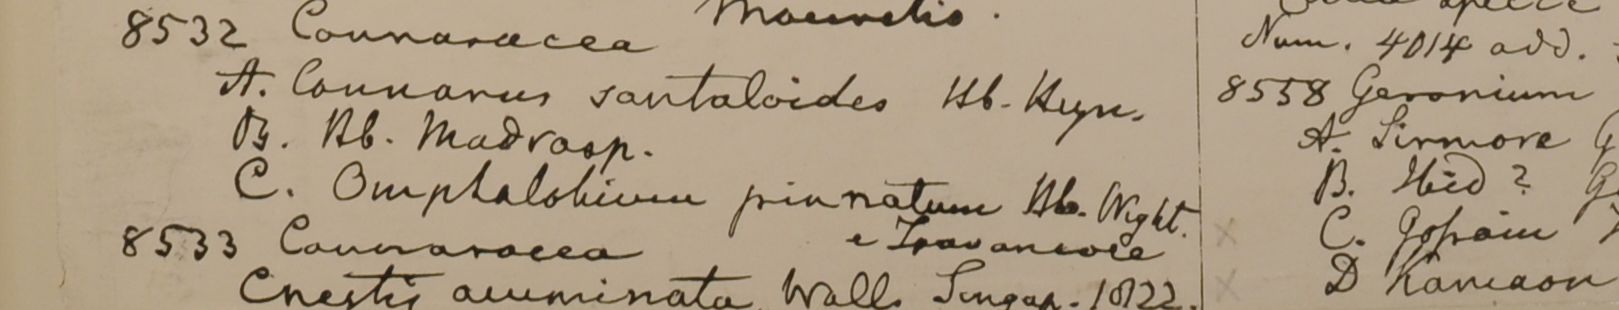 Mauritio.
8532 Connaracea
A. Connarus santaloides Hb. Heyn.
B. Hb. Madrasp.
C. Omphalobium pinnatum Hb. Wight.
e Travancore
8533 Connaracea
Cnestis acuminata Wall. Singap. 1822.
Num. 4014 add.
8558 Geranium
A. Sirmore G
B. Ibid? G
C. Gosain
D Kamaon